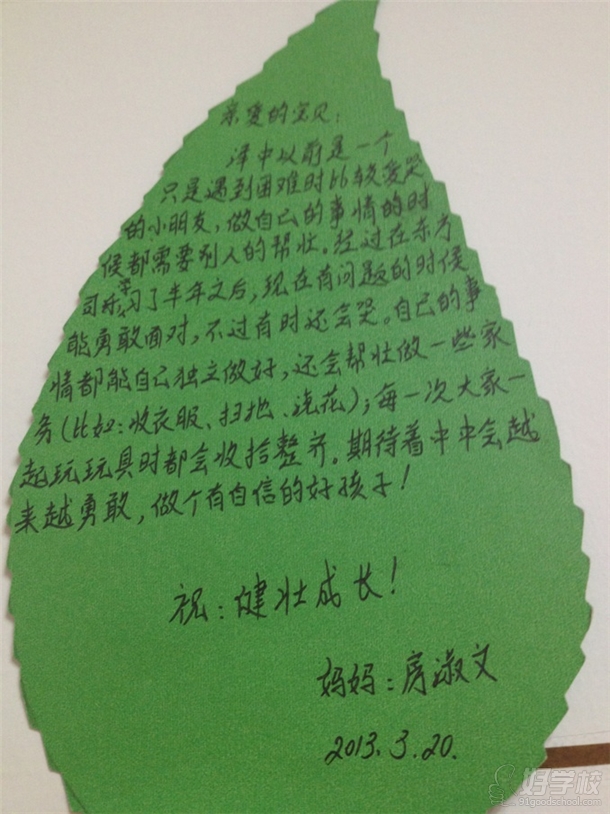 亲爱的宝贝：
泽中以前是一个
只是遇到困难时比较爱哭
的小朋友，做自己的事情的时
候都需要别人的帮忙。经过在东方
司乐学习了半年之后，现在有问题的时候
能勇敢面对，不过有时还会哭。自己的事
情都能自己独立做好，还会帮忙做一些家
务（比如：收衣服、扫地、浇花）；每一次大家一
起玩玩具时都会收拾整齐。期待着中中会越
来越勇敢，做个有自信的好孩子！
祝：健壮成长！
妈妈：房淑文
2013.3.20.
好学校
91goodschool.com